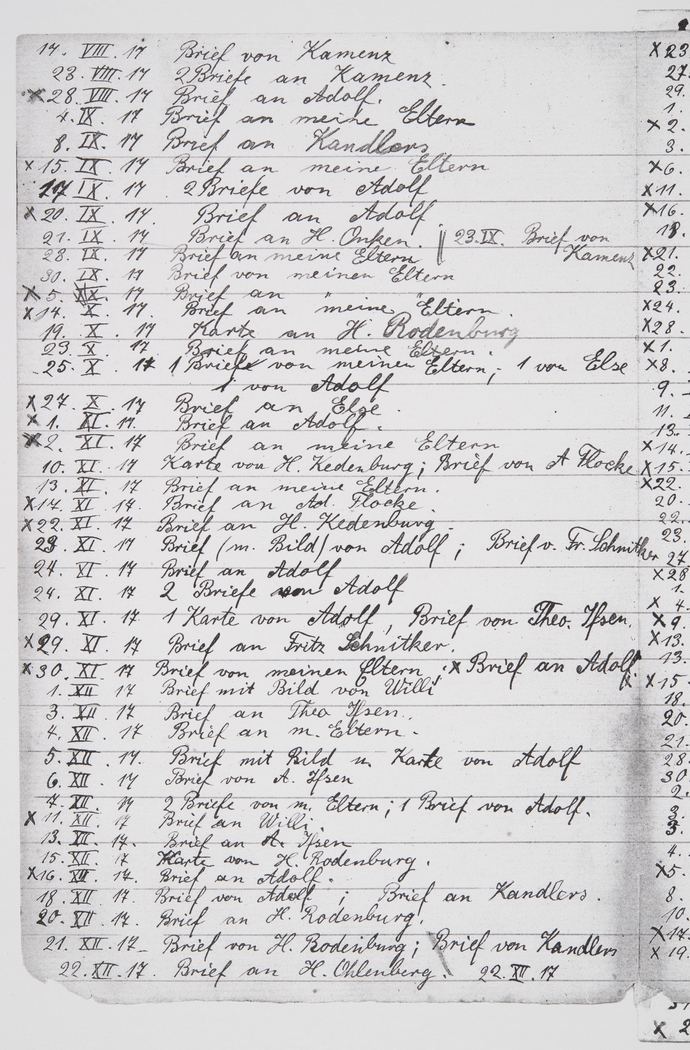 17. VIII. 17 Brief von Kamenz
23. VIII. 17 2 Briefe an Kamenz.
x 28. VIII. 17 Brief an Adolf.
4. IX. 17 Brief an meine Eltern
8. IX. 17 Brief an Kandlers
x 15. IX. 17 Brief an meine Eltern
17 IX. 17 2 Briefe von Adolf
x 20. IX. 17. Brief an Adolf
21. IX. 17 Brief an H. Onken. || 23. IX. Brief von Kamenz
28. IX. 17 Brief an meine Eltern
30. IX 17 Brief von meinen Eltern
x 5. X. 17 Brief an " "
x 14. X. 17. Brief an meine Eltern.
19. X. 17 Karte an H. Rodenburg
23. X 17 Brief an meine Eltern.
25. X. 17 1 Brief von meinen Eltern; 1 von Else
1 von Adolf
x 27. X 17 Brief an Else.
x 1. XI. 17. Brief an Adolf.
x 2. XI. 17 Brief an meine Eltern
10. XI. 17 Karte von H. Kedenburg; Brief von A Flocke
13. XI. 17 Brief an meine Eltern.
x 17. XI. 17 Brief an Ad. Flocke.
x 22. XI. 17 Brief an H. Kedenburg.
23. XI. 17 Brief (m. Bild) von Adolf; Brief v. Fr. Schnitker
24. XI. 17 Brief an Adolf
24. XI. 17 2 Briefe von Adolf
29. XI. 17 1 Karte von Adolf, Brief von Theo. Ifsen.
x 29. XI. 17 Brief an Fritz Schnitker.
x 30. XI 17 Brief von meinen Eltern. x Brief an Adolf
1. XII 17 Brief mit Bild von Willi
3. XII. 17 Brief an Theo Ifsen.
4. XII. 17 Brief an m. Eltern.
5. XII. 17. Brief mit Bild u. Karte von Adolf
6. XII. 17 Brief von A. Ifsen
7. XII. 17 2 Briefe von m. Eltern; 1 Brief von Adolf.
x 11. XII. 17 Brief an Willi.
13. XII. 17. Brief an A. Ifsen
15. XII. 17 Karte von H. Rodenburg.
x 16. XII. 17. Brief an Adolf.
18. XII. 17 Brief von Adolf; Brief an Kandlers.
20. XII. 17. Brief an H. Rodenburg.
21. XII. 17 Brief von H. Rodenburg; Brief von Kandlers
22. XII. 17. Brief an H. Ohlenberg. 22. XII. 17
x 23
27.
29.
1.
x 2.
3.
x 6.
x 11.
x 16.
18.
x 21.
22.
23.
x 24.
x 28.
x 1.
x 8.
9.
11.
13.
x 14.
x 15.
x 22.
20.
22.
23.
27
x 28
1.
x 4.
x 9.
x 13.
13.
x 15
18.
20.
21.
28.
30
2.
3.
3.
4.
x 5.
8.
10.
x 17.
x 19.
x 2